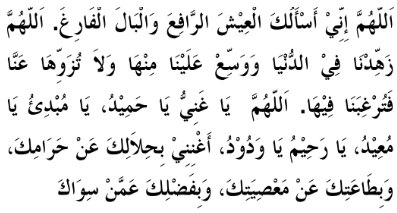 اَللّٰهُمَّ إِنِّيْ أَسْأَلُكَ الْعِيْشَ الرَّافِعَ وَالْبَالَ الْفَارِغَ. اَللّٰهُمَّ
زَهِّدْنَا فِيْ الدُّنْيَا وَوَسِّعْ عَلَيْنَا مِنْهَا وَلاَ تُزَوِّهَا عَنَّا
فَتُرْغِبَنَا فِيْهَا. اَللّٰهُمَّ يَا غَنِيُّ يَا حَمِيْدُ، يَا مُبْدِئُ يَا
مُعِيْدُ، يَا رَحِيْمُ يَا وَدُوْدُ، أَغْنِنِيْ بِحَلاَلِكَ عَنْ حَرَامِكَ،
وَبِطَاعَتِكَ عَنْ مَعْصِيَتِكَ، وَبِفَضْلِكَ عَمَّنْ سِوَاكَ